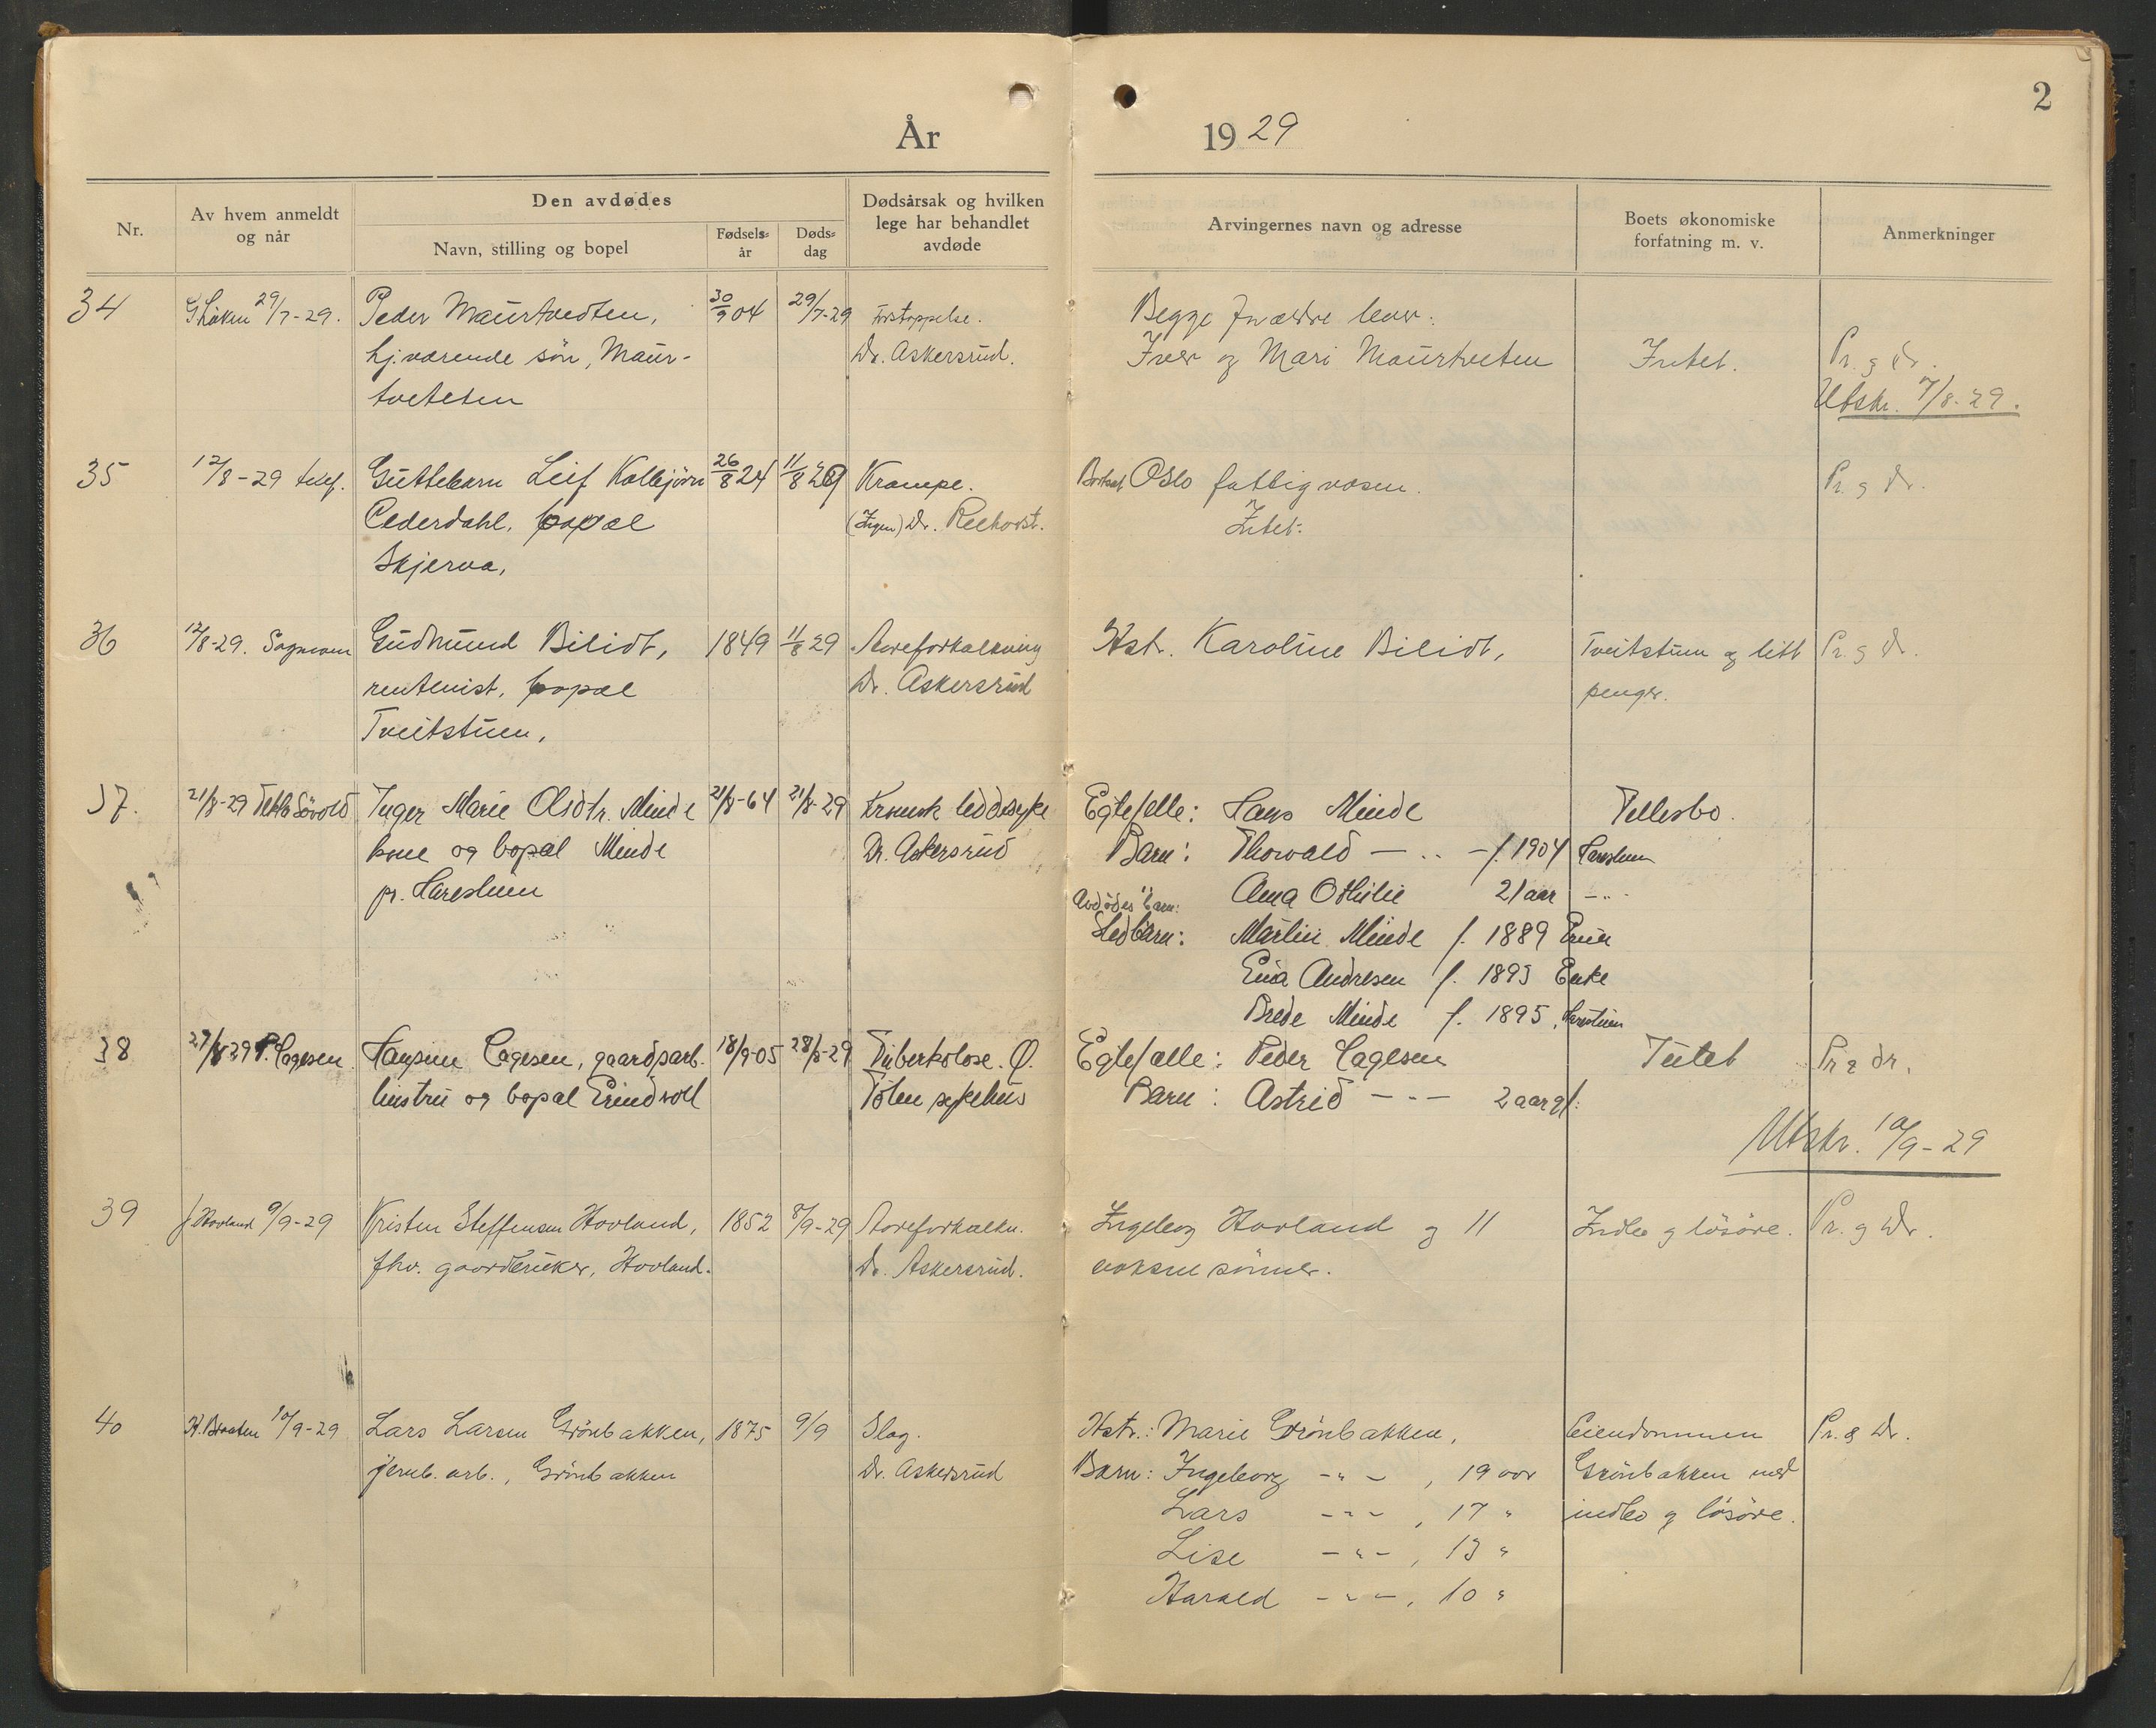 2
År 1929
Nr.
Av hvem anmeldt
og når
Den avdødes
Navn, stilling og bopel
Fødsels-
år
Døds-
dag
Dødsårsak og hvilken
lege har behandlet
avdøde
Arvingernes navn og adresse
Boets økonomiske
forfatning m. v.
Anmerkninger
34 29/7-29. Peder Maurtvedten, 30/9 04 29/7-29 Forstoppelse. Begge forældre lever.
hj.værende søn, Maur- Dr. Askersrud. Iver og Mari Maurtveten Intet. Pr. g dr.
tveteten Utskr. 7/8-29.
35 12/8-29 telef. Guttebarn Leif Kolbjørn 26/8 24 11/8 29 Krampe. Bortsat Oslo fattigvæsen. Pr. g dr.
Cederdahl, bopæl (Ingen) Dr. Reehorst. Intet.
Skjerva,
36 12/8-29. Gudmund Bilidt, 1849 11/8 29 Aareforkalkning Hstr. Karoline Bilidt, Tveitstuen og litt Pr. g dr.
rentenist, bopæl Dr. Askersrud penger.
Tveitstuen,
37. 21/8-29 Inger Marie Olsdtr. Minde 21/8-64 21/8-29 Kronisk leddsyke Egtefelle: Hans Minde Pellesbo.
kone og bopæl Minde Dr. Askersrud Barn: Thorvald — .. — f. 1904 Harestuen
pr. Harestuen Avdødes barn: Anna Othilie 21 aar — .. -
Stedbarn: Martin Minde f. 1889
Andresen f. 1893 Enke
Brede Minde f. 1895, Harestuen
38 27/8 29 P. Hagesen. Hagesen, gaardsarb. 18/9-05 28/8-29 Tuberkolose. Ø. Egtefælle: Peder Hagesen Intet Pr. g dr.
hustru og bopæl Toten sykehus Barn: Astrid - - - 2 aar gl.
Utskr. 10/9-29
39 J. Hovland 9/9-29 Kristen Steffensen Hovland, 1852 8/9-29 Aareforkalkn. Ingeborg Hovland og 11 Indbo g løsøre. Pr. g dr.
fhv. gaardbruker, Hovland. Dr. Askersrud. voksne sønner.
40 H. Braaten 10/9-29 Lars Larsen Grönbakken, 1875 9/9 Slag. Hstr.: Marie Grönbakken, Eiendommen Pr. & dr.
jernb. arb., Grönbakken Dr. Askersrud Barn: Ingeborg -"- , 19 aar Grönbakken med
Lars -"- , 17 " indbo g løsøre.
Lise -"- , 13 "
Harald -"- , 10 "